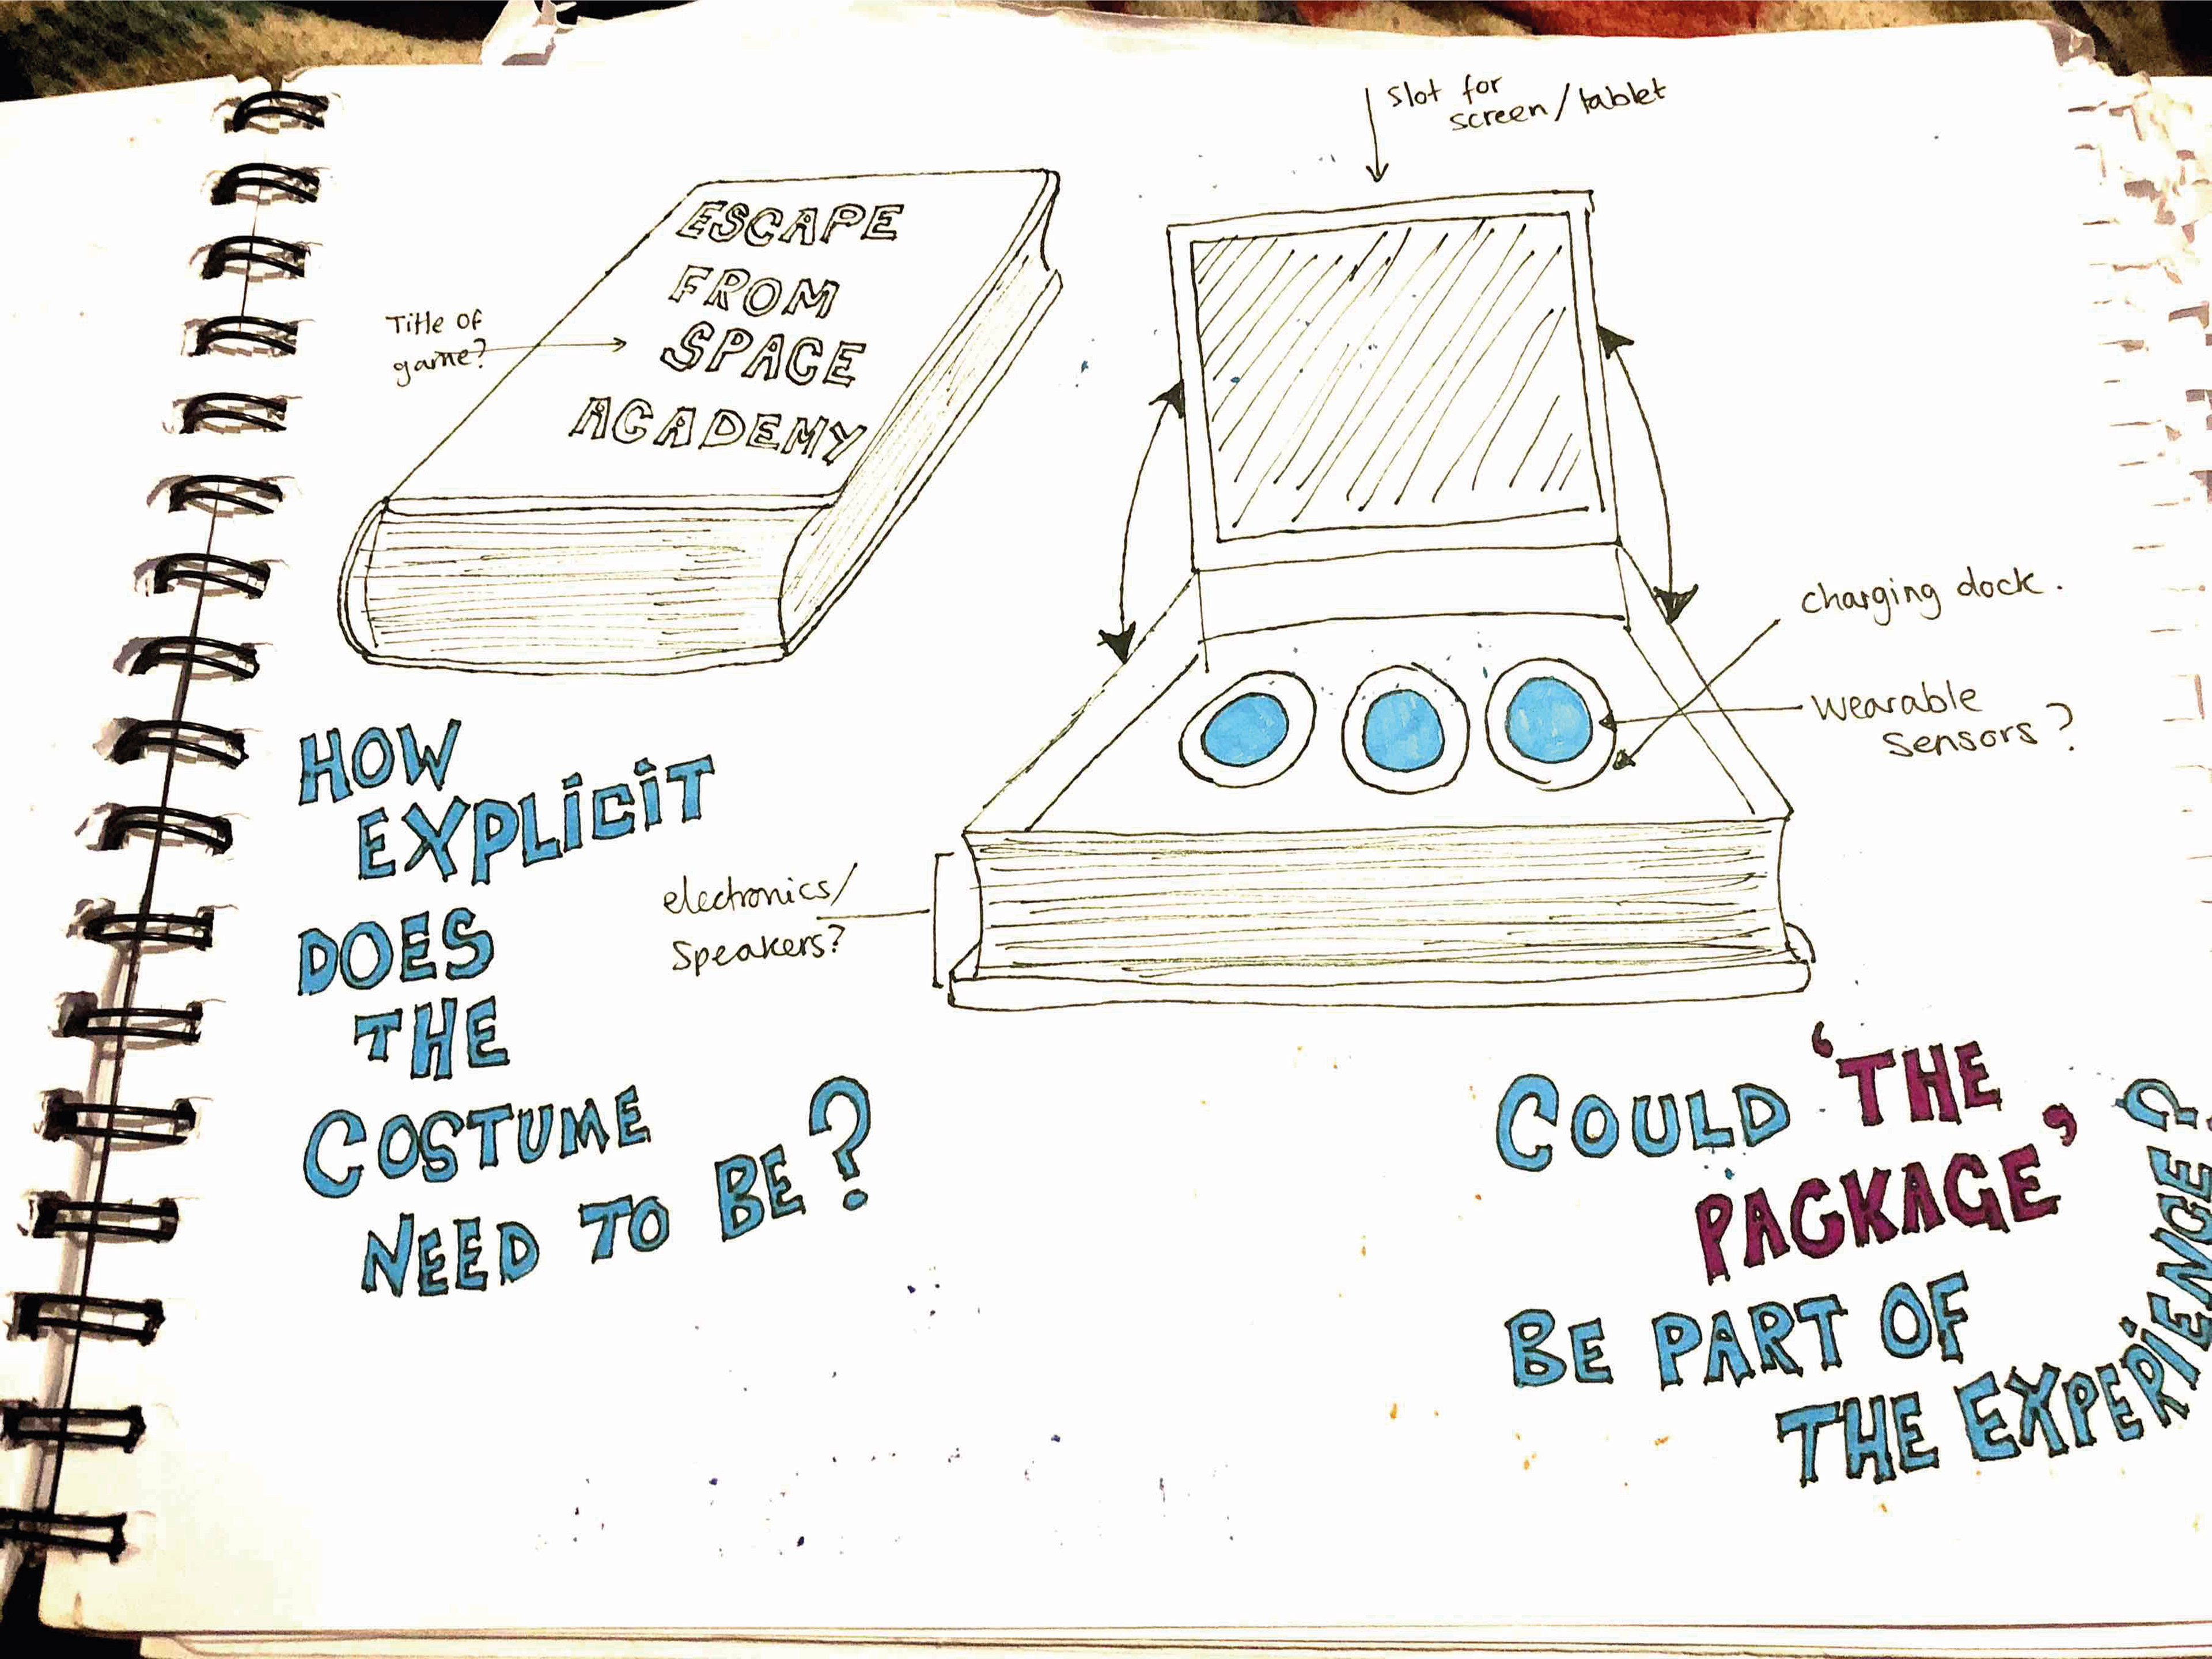 Slot for
screen/tablet
ESCAPE
FROM
SPACE
ACADEMY
Title of
game?
charging dock.
Wearable
Sensors?
electronics/
Speakers?
HOW
EXPLICIT
DOES
THE
COSTUME
NEED TO BE?
COULD 'THE
PACKAGE'
BE PART OF
THE EXPERIENCE?